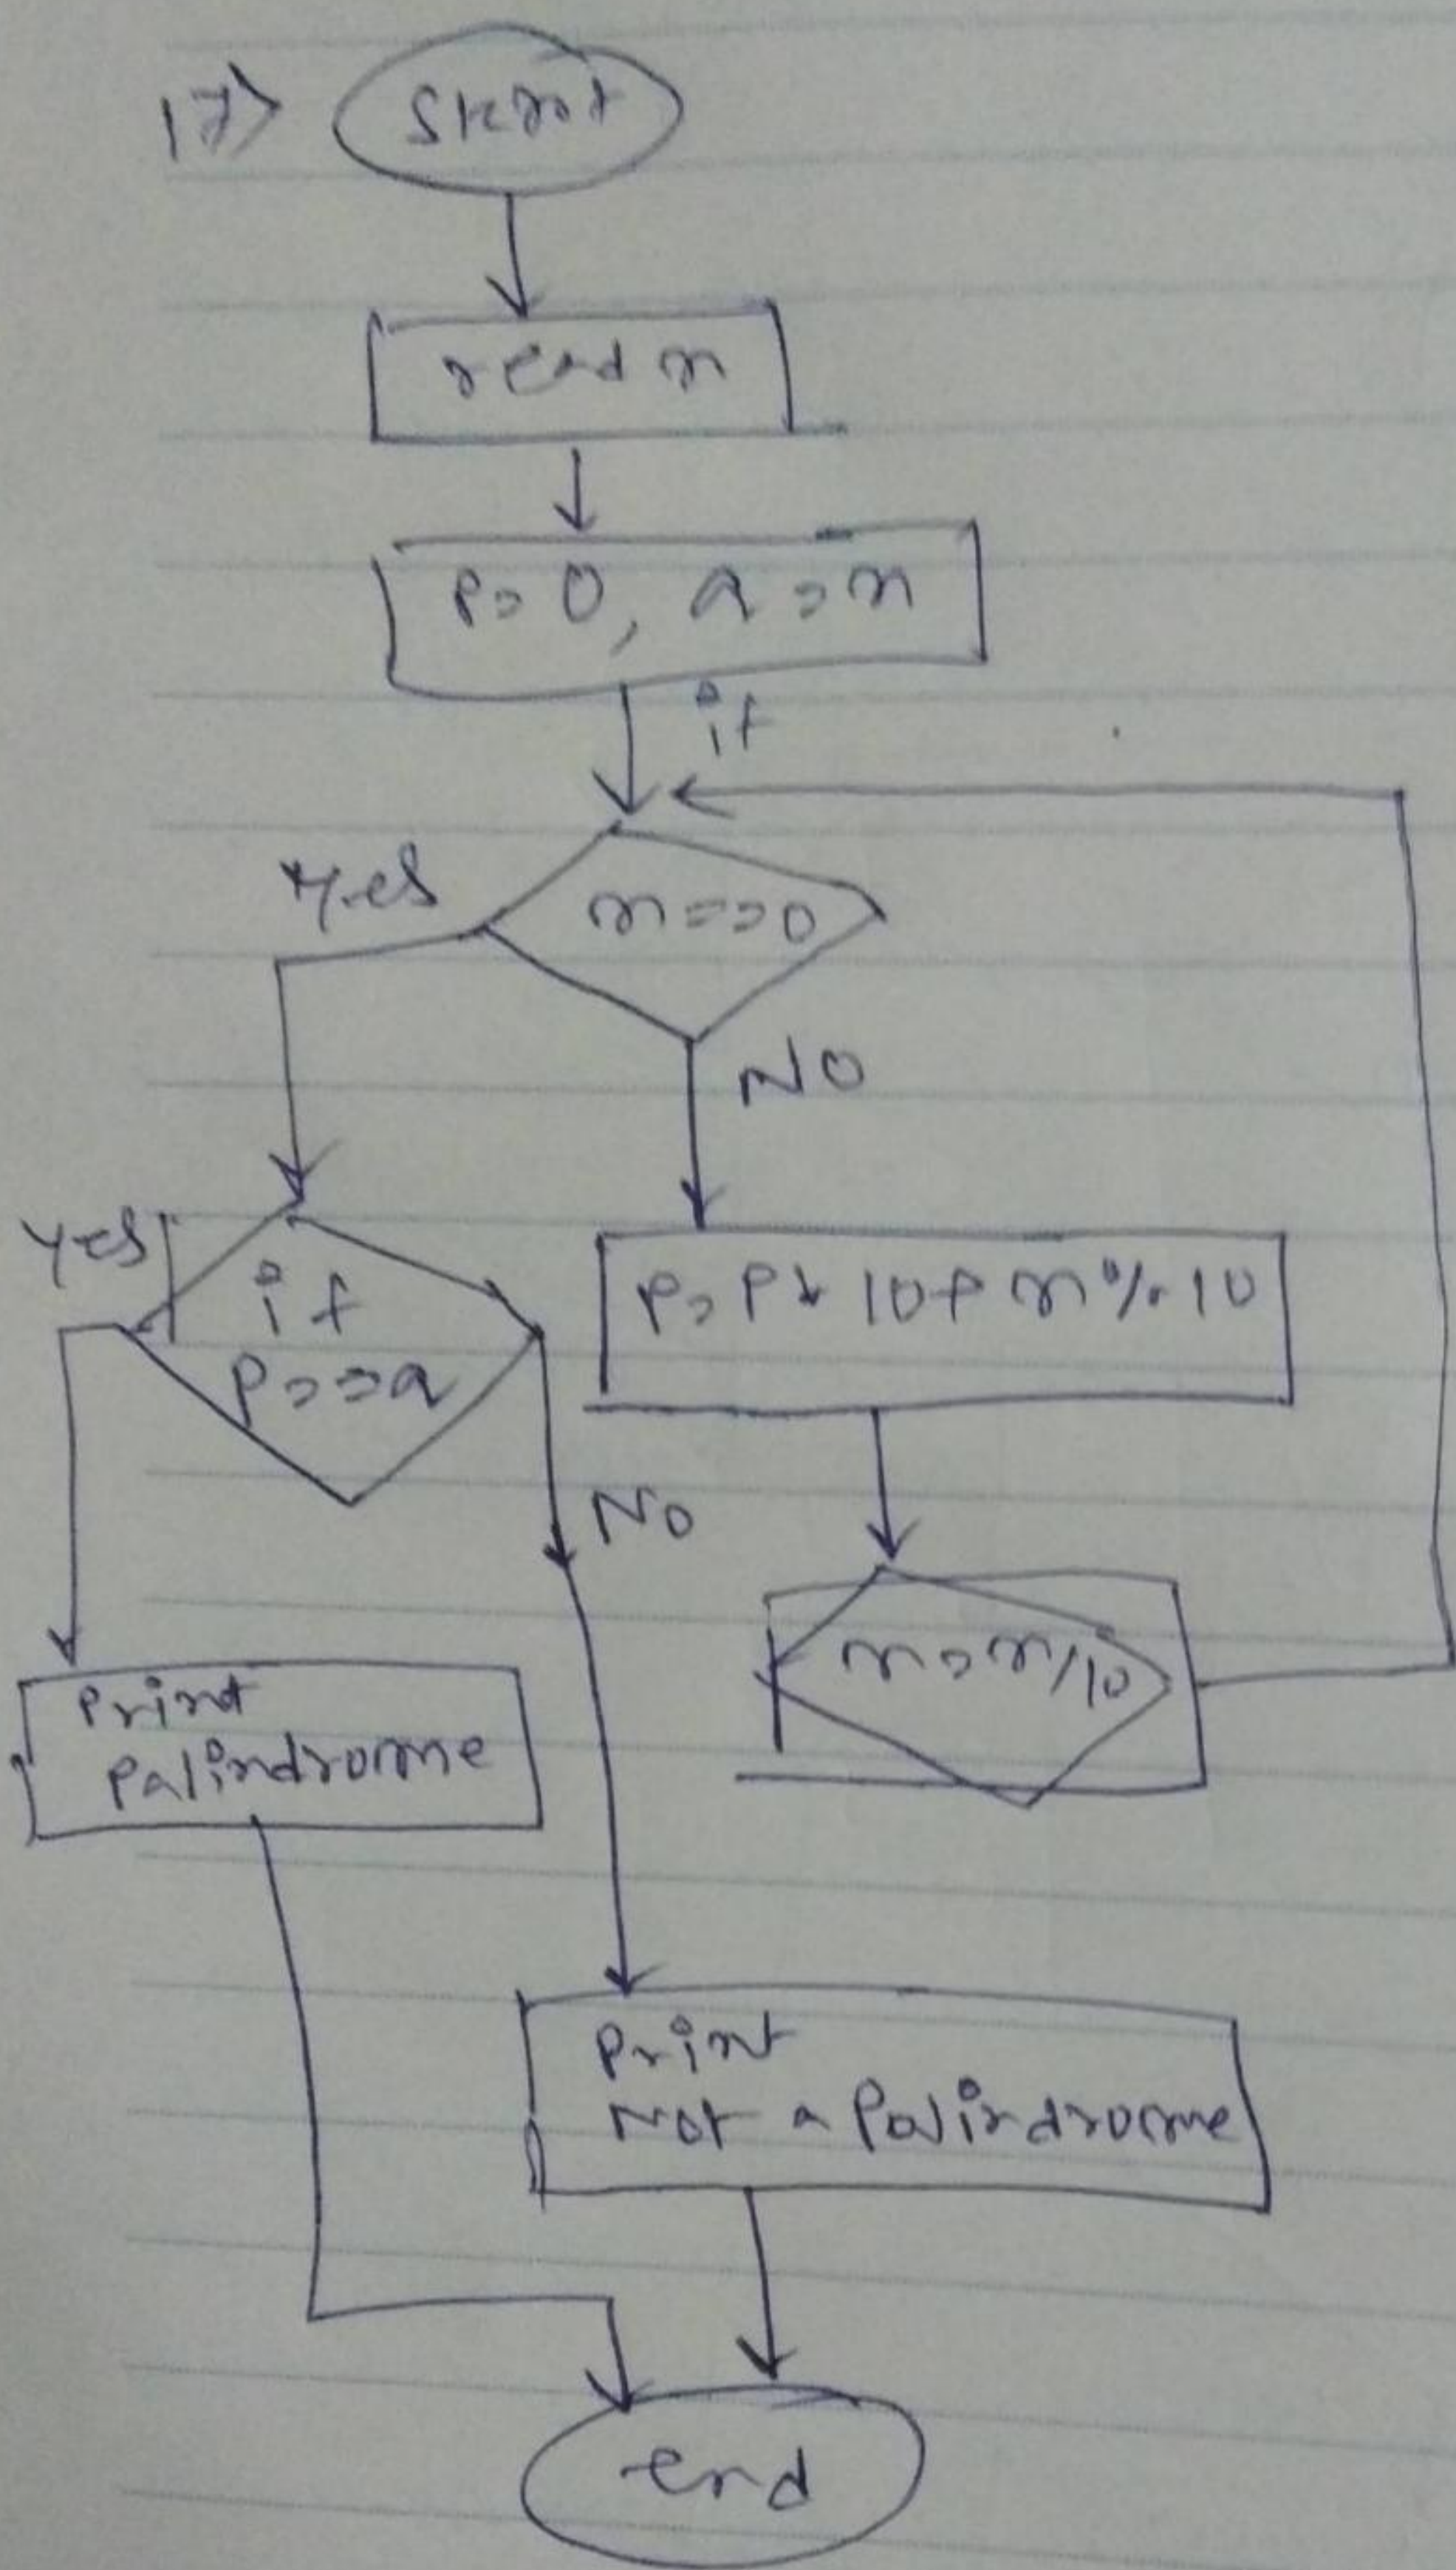 17> Start
read n
P=0, a=n
if
n==0
yes
NO
if
P==a
yes
No
P=P*10+n%10
n=n/10
Print
Palindrome
Print
Not a Palindrome
end